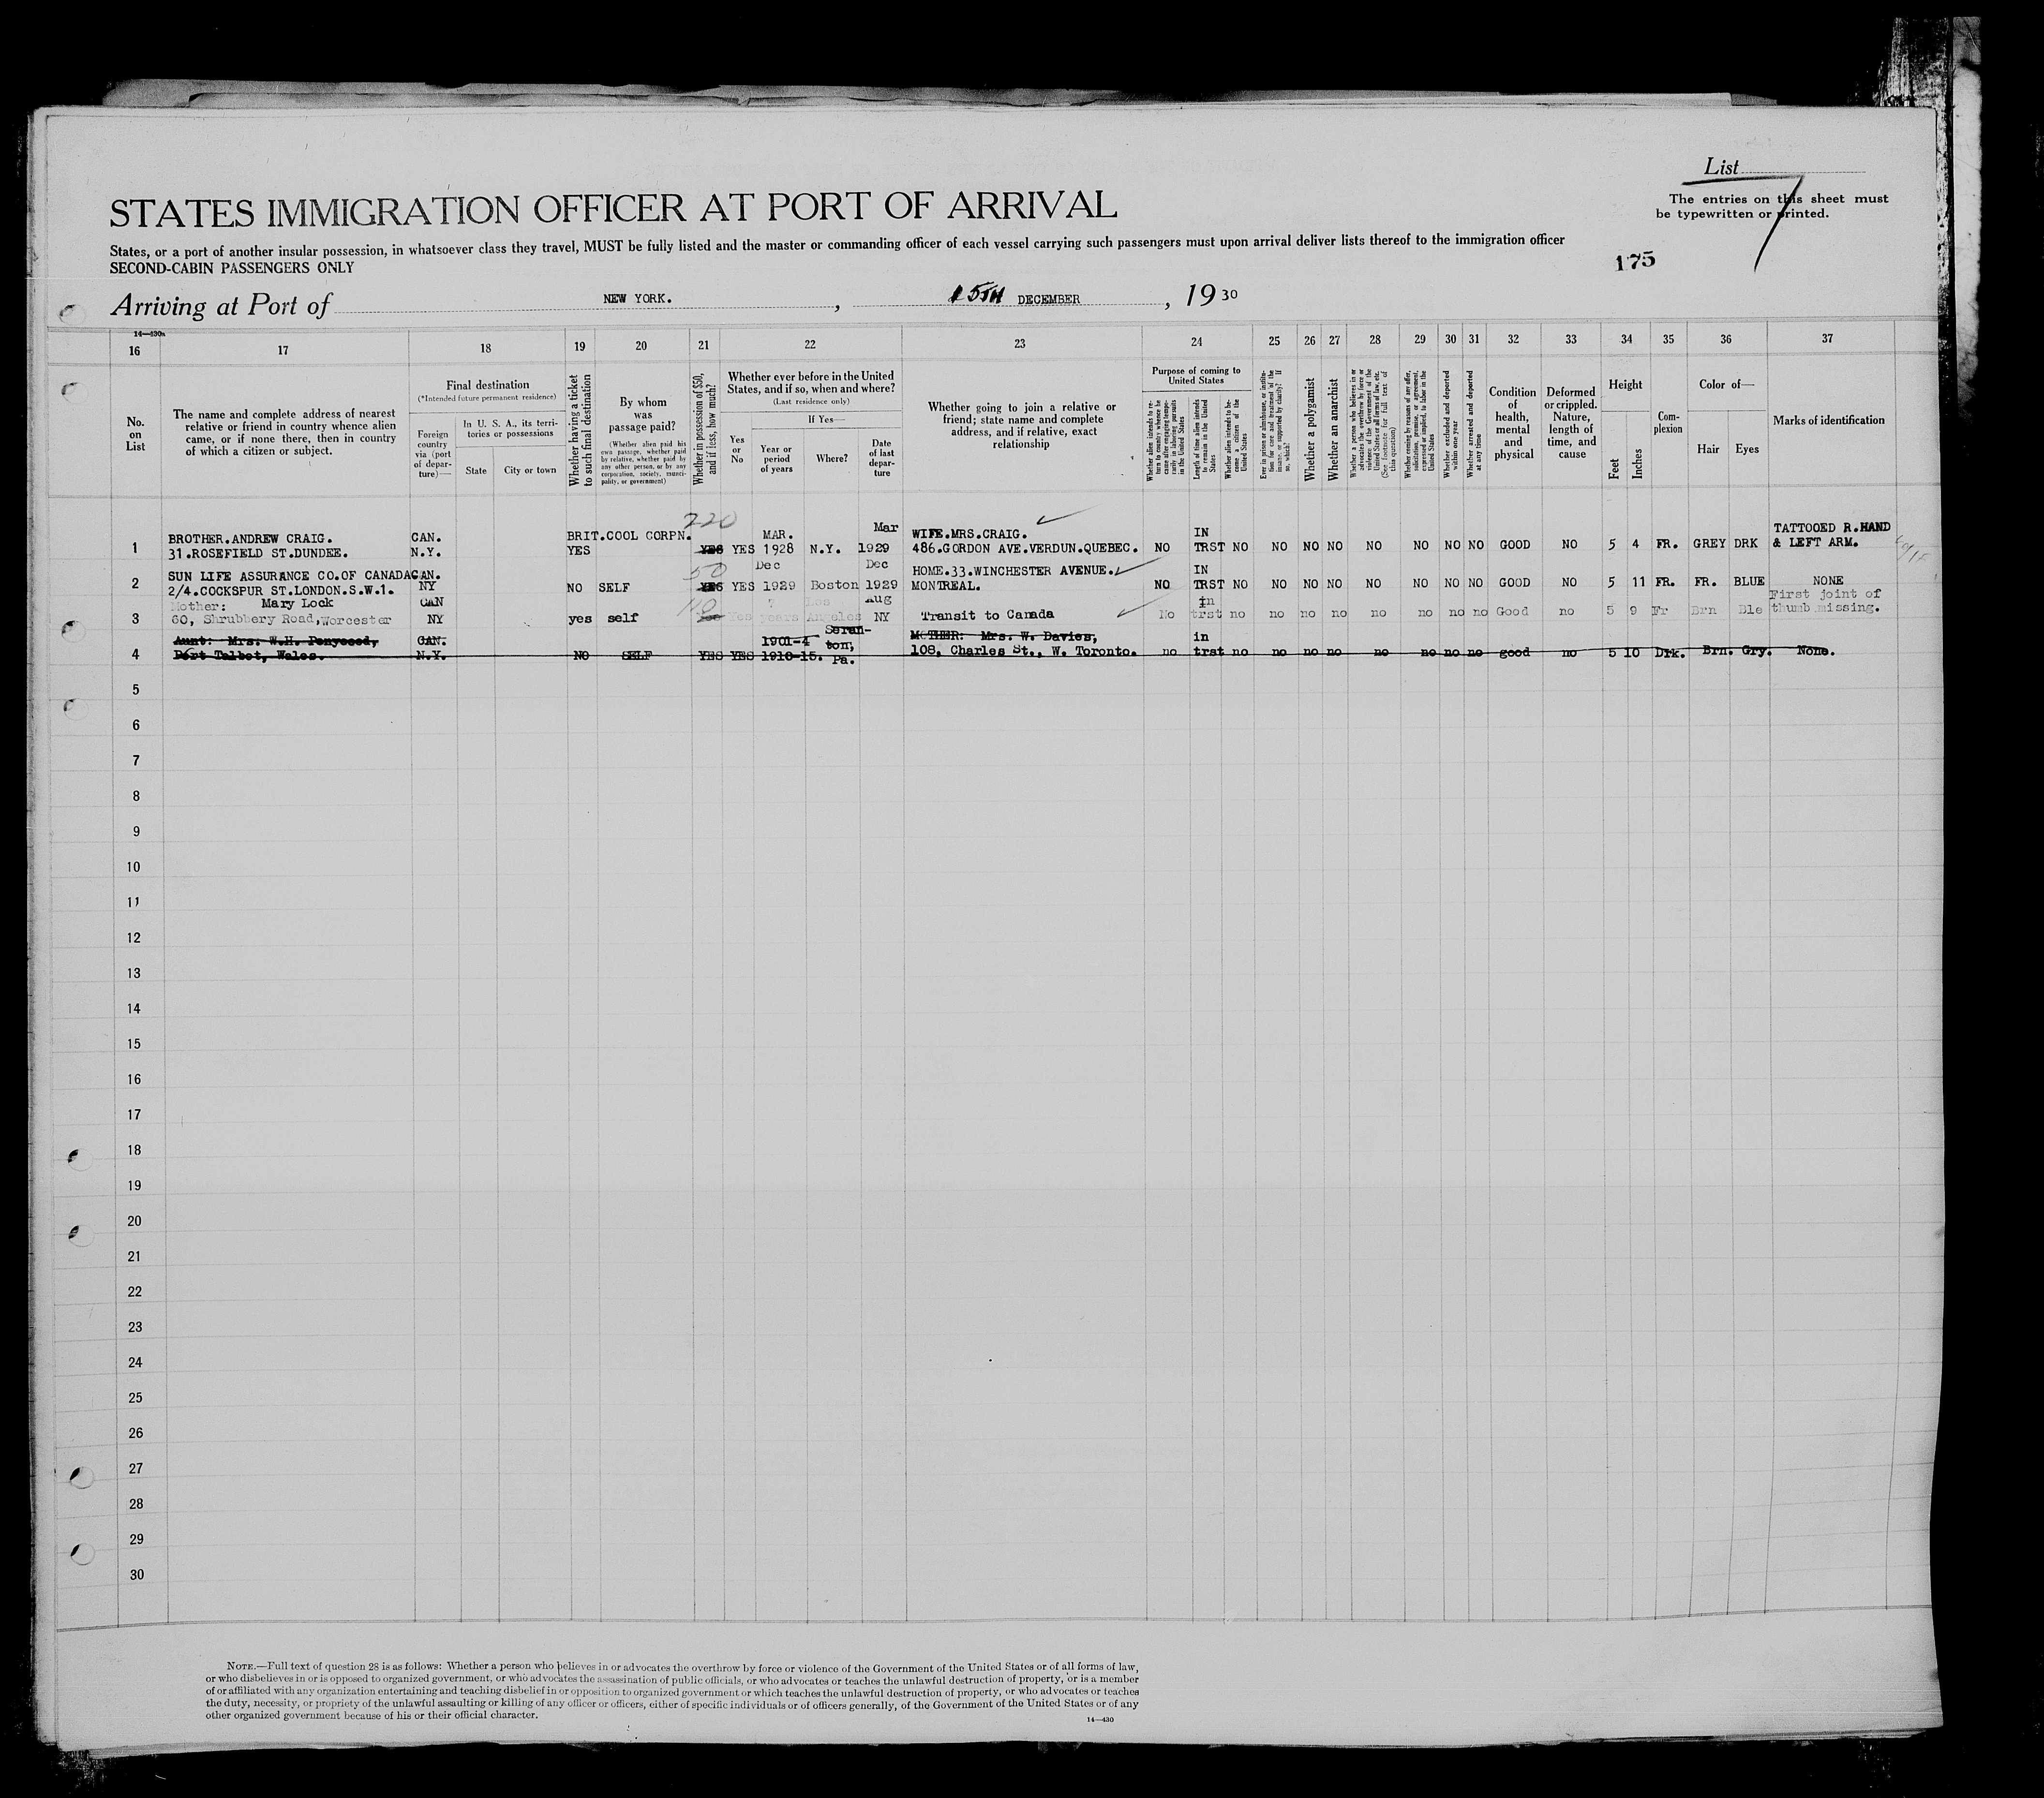 List 7
The entries on this sheet must
be typewritten or printed.
STATES IMMIGRATION OFFICER AT PORT OF ARRIVAL
States, or a port of another insular possession, in whatsoever class they travel, MUST be fully listed and the master or commanding officer of each vessel carrying such passengers must upon arrival deliver lists thereof to the immigration officer
SECOND-CABIN PASSENGERS ONLY
175
Arriving at Port of NEW YORK. , 15TH DECEMBER , 19 30
14—430a
16 17 18 19 20 21 22 23 24 25 26 27 28 29 30 31 32 33 34 35 36 37
No.
on
List
The name and complete address of nearest
relative or friend in country whence alien
came, or if none there, then in country
of which a citizen or subject.
Final destination
(*Intended future permanent residence)
Foreign
country
via (port
of depar-
ture)—
In U. S. A., its terri-
tories or possessions
State City or town
Whether having a ticket
to such final destination
By whom
was
passage paid?
(Whether alien paid his
own passage, whether paid
by relative, whether paid by
any other person, or by any
corporation, society, munici-
pality, or government)
Whether in possession of $50,
and if less, how much?
Whether ever before in the United
States, and if so, when and where?
(Last residence only)
Yes
or
No
If Yes—
Year or
period
of years
Where?
Date
of last
depar-
ture
Whether going to join a relative or
friend; state name and complete
address, and if relative, exact
relationship
Purpose of coming to
United States
Whether alien intends to re-
turn to country whence he
came after engaging tempo-
rarily in laboring pursuits
in the United States
Length of time alien intends
to remain in the United
States
Whether alien intends to be-
come a citizen of the
United States
Ever in prison or almshouse, or institu-
tion for care and treatment of the
insane, or supported by charity? If
so, which?
Whether a polygamist
Whether an anarchist
Whether a person who believes in or
advocates the overthrow by force or
violence of the Government of the
United States or all forms of law, etc.
(See footnote for full text of
this question)
Whether coming by reasons of any offer,
solicitation, promise, or agreement,
expressed or implied, to labor in the
United States
Whether excluded and deported
within one year
Whether arrested and deported
at any time
Condition
of
health,
mental
and
physical
Deformed
or crippled.
Nature,
length of
time, and
cause
Height
Feet Inches
Com-
plexion
Color of—
Hair Eyes
Marks of identification
220
BROTHER.ANDREW CRAIG. CAN. BRIT.COOL CORPN. MAR. Mar WIFE.MRS.CRAIG. IN TATTOOED R.HAND
1 31.ROSEFIELD ST.DUNDEE. N.Y. YES YES YES 1928 N.Y. 1929 486.GORDON AVE.VERDUN.QUEBEC. NO TRST NO NO NO NO NO NO NO NO GOOD NO 5 4 FR. GREY DRK & LEFT ARM.
SUN LIFE ASSURANCE CO.OF CANADA CAN. 50 Dec Dec HOME.33.WINCHESTER AVENUE. IN
2 2/4.COCKSPUR ST.LONDON.S.W.1. NY NO SELF YES YES 1929 Boston 1929 MONTREAL. NO TRST NO NO NO NO NO NO NO NO GOOD NO 5 11 FR. FR. BLUE NONE
Mother: Mary Lock CAN 7 Los Aug in First joint of
3 60, Shrubbery Road, Worcester NY yes self Yes years Angeles NY Transit to Canada No trst no no no no no no no no Good no 5 9 Fr Brn Ble thumb missing.
Aunt: Mrs. W.H. CAN. 1901-4 Scran- MOTHER: Mrs. W. Davies, in
4 Port Talbot, Wales. N.Y. NO SELF YES YES 1910-15. ton, Pa. 108, Charles St., W. Toronto. no trst no no no no no no no no good no 5 10 Drk. Brn. Gry. None.
5
6
7
8
9
10
11
12
13
14
15
16
17
18
19
20
21
22
23
24
25
26
27
28
29
30
NOTE.—Full text of question 28 is as follows: Whether a person who believes in or advocates the overthrow by force or violence of the Government of the United States or of all forms of law,
or who disbelieves in or is opposed to organized government, or who advocates the assassination of public officials, or who advocates or teaches the unlawful destruction of property, or is a member
of or affiliated with any organization entertaining and teaching disbelief in or opposition to organized government or which teaches the unlawful destruction of property, or who advocates or teaches
the duty, necessity, or propriety of the unlawful assaulting or killing of any officer or officers, either of specific individuals or of officers generally, of the Government of the United States or of any
other organized government because of his or their official character.
14—430